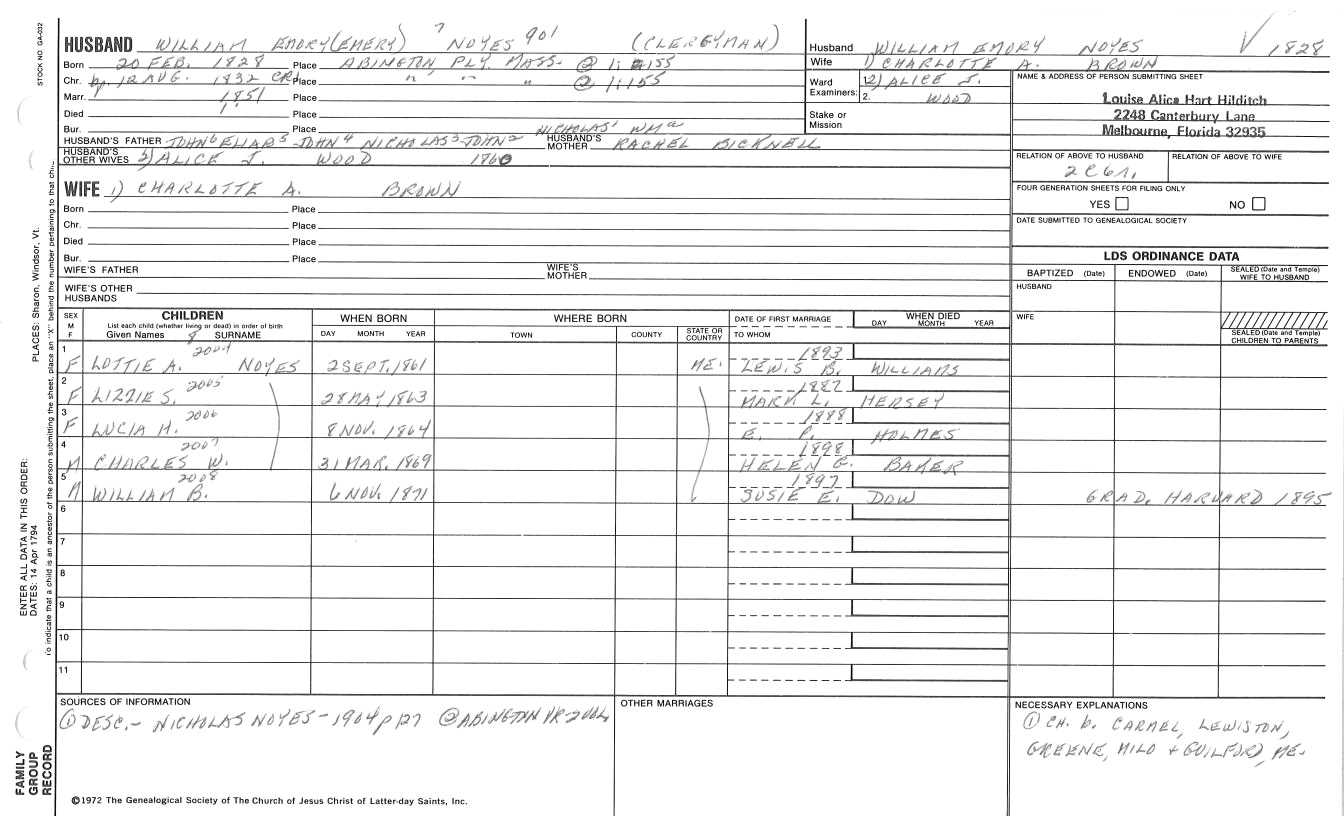 STOCK NO. GA-032
HUSBAND WILLIAM EMORY (EMERY) NOYES 901 (CLERGYMAN)
Born 20 FEB. 1828 Place ABINGTON, PLY. MASS. @ 1:155
Chr. bp. 12 AUG. 1832 CR1 Place " " " @ 1:155
Marr. 1851 Place
Died Place
Bur. Place
HUSBAND'S FATHER JOHN6 ELIAB5 JOHN4 NICHOLAS3 JOHN2 NICHOLAS1 WMa HUSBAND'S MOTHER RACHEL BICKNELL
HUSBAND'S OTHER WIVES 2) ALICE J. WOOD 1860
Husband WILLIAM EMORY NOYES V 1828
Wife 1) CHARLOTTE A. BROWN
Ward 1. 2) ALICE J.
Examiners: 2. WOOD
Stake or Mission
NAME & ADDRESS OF PERSON SUBMITTING SHEET
Louise Alica Hart Hilditch
2248 Canterbury Lane
Melbourne, Florida 32935
RELATION OF ABOVE TO HUSBAND RELATION OF ABOVE TO WIFE
2C6R.
FOUR GENERATION SHEETS FOR FILING ONLY
YES NO
DATE SUBMITTED TO GENEALOGICAL SOCIETY
WIFE 1) CHARLOTTE A. BROWN
Born Place
Chr. Place
Died Place
Bur. Place
WIFE'S FATHER WIFE'S MOTHER
WIFE'S OTHER HUSBANDS
LDS ORDINANCE DATA
BAPTIZED (Date) ENDOWED (Date) SEALED (Date and Temple) WIFE TO HUSBAND
HUSBAND
WIFE
SEALED (Date and Temple) CHILDREN TO PARENTS
SEX M F CHILDREN WHEN BORN WHERE BORN DATE OF FIRST MARRIAGE WHEN DIED
List each child (whether living or dead) in order of birth
Given Names 8 SURNAME DAY MONTH YEAR TOWN COUNTY STATE OR COUNTRY TO WHOM DAY MONTH YEAR
1 2004 1893
F LOTTIE A. NOYES 2 SEPT. 1861 ME. LEWIS B. WILLIAMS
2 2005 1887
F LIZZIE S. 28 MAY 1863 MARK L. HERSEY
3 2006 1888
F LUCIA H. 8 NOV. 1864 E. P. HOLMES
4 2007 1898
M CHARLES W. 31 MAR. 1869 HELEN G. BAKER
5 2008 1897
M WILLIAM B. 6 NOV. 1871 SUSIE E. DOW GRAD. HARVARD 1895
6
7
8
9
10
11
SOURCES OF INFORMATION
① DESC. - NICHOLAS NOYES - 1904 p 127 ② ABINGTON VR - 2 VOL
OTHER MARRIAGES
NECESSARY EXPLANATIONS
① CH. b. CARMEL, LEWISTON,
GREENE, MILO + GUILFORD, ME.
©1972 The Genealogical Society of The Church of Jesus Christ of Latter-day Saints, Inc.
FAMILY GROUP RECORD
ENTER ALL DATA IN THIS ORDER:
DATES: 14 Apr 1794
PLACES: Sharon, Windsor, Vt.
To indicate that a child is an ancestor of the person submitting the sheet, place an "X" behind the number pertaining to that